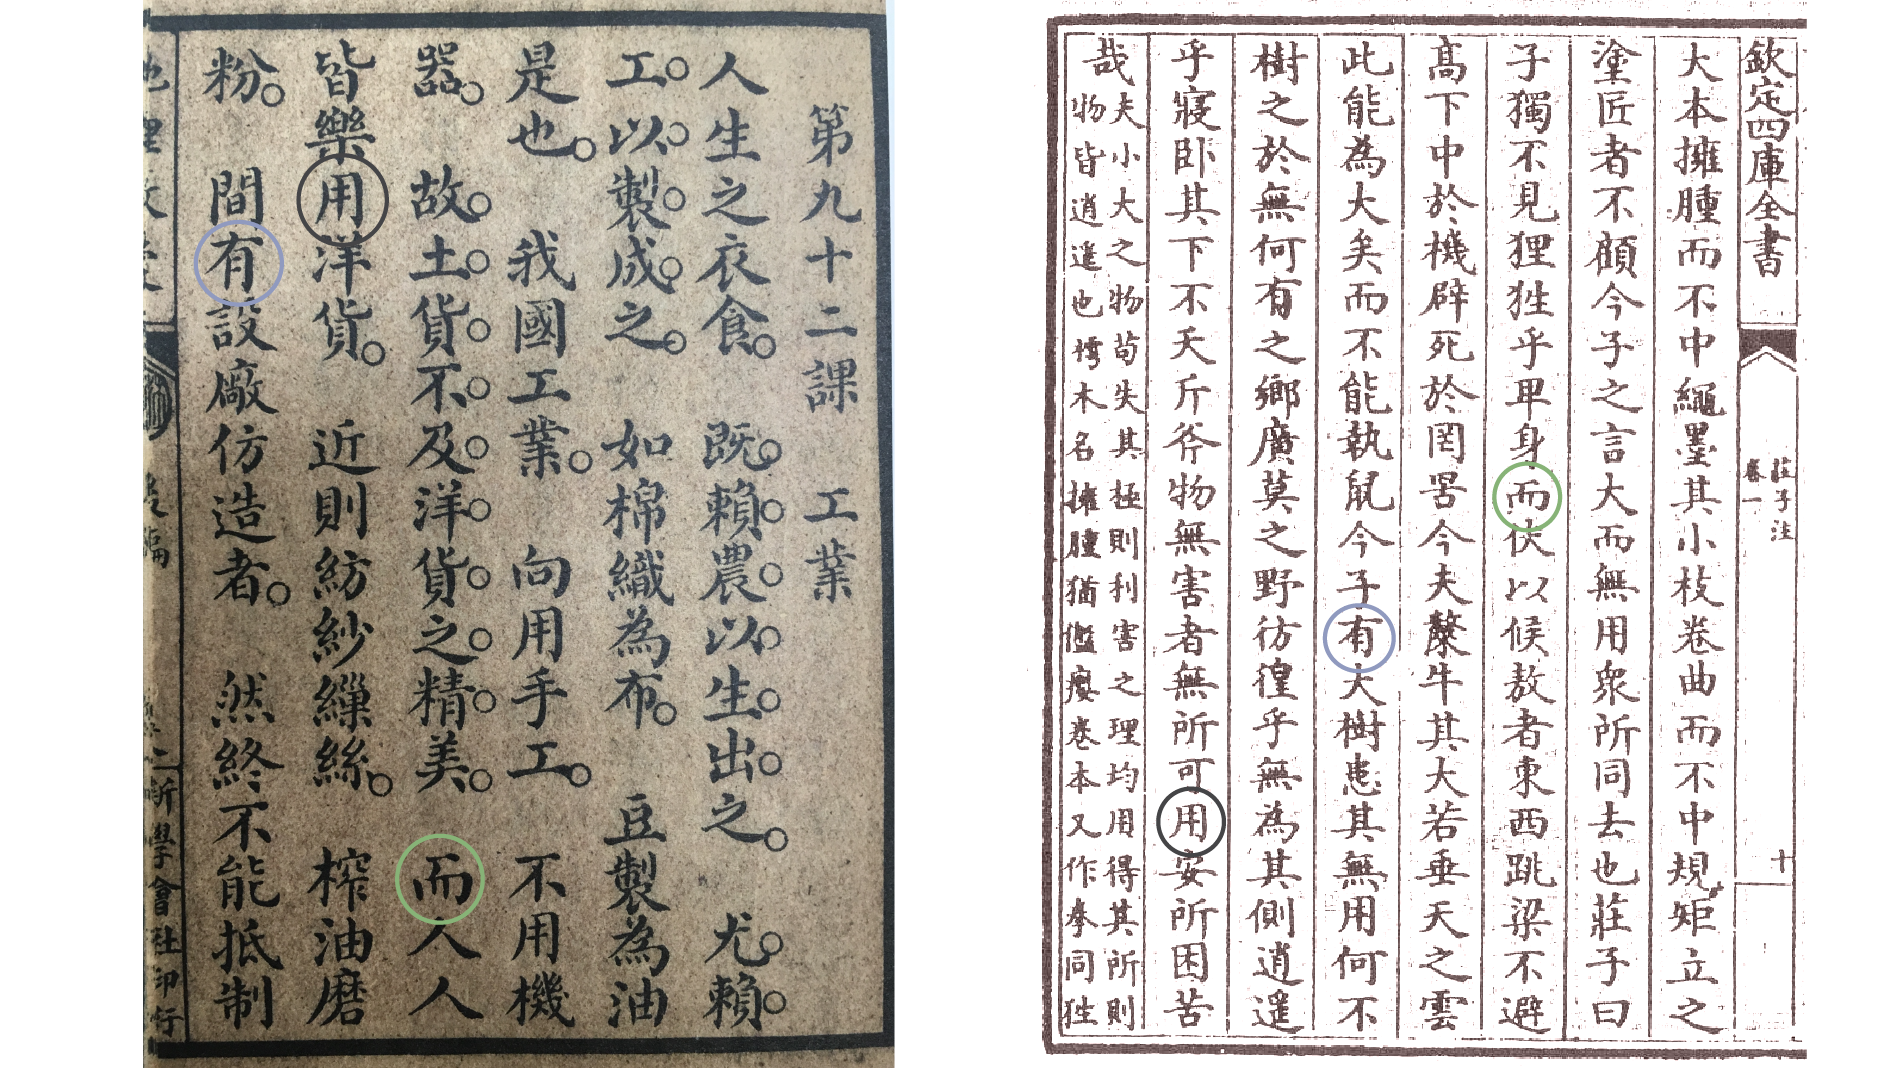 第九十二課 工業
人生之衣食。既賴農以生出之。尤賴
工以製成之。如棉織為布。豆製為油
是也。我國工業。向用手工。不用機
器。故土貨不及洋貨之精美。而人人
皆樂用洋貨。近則紡紗繅絲。榨油磨
粉。間有設廠仿造者。然終不能抵制
新學會社印行
欽定四庫全書
莊子注
卷一
十
大本擁腫而不中繩墨其小枝卷曲而不中規矩立之
塗匠者不顧今子之言大而無用衆所同去也莊子曰
子獨不見狸狌乎卑身而伏以候敖者東西跳梁不避
髙下中於機辟死於罔罟今夫斄牛其大若垂天之雲
此能為大矣而不能執鼠今子有大樹患其無用何不
樹之於無何有之鄉廣莫之野彷徨乎無為其側逍遥
乎寢卧其下不夭斤斧物無害者無所可用安所困苦
哉
夫小大之物苟失其極則利害之理均用得其所則
物皆逍遥也樗木名擁腫猶癭卷本又作拳同狌